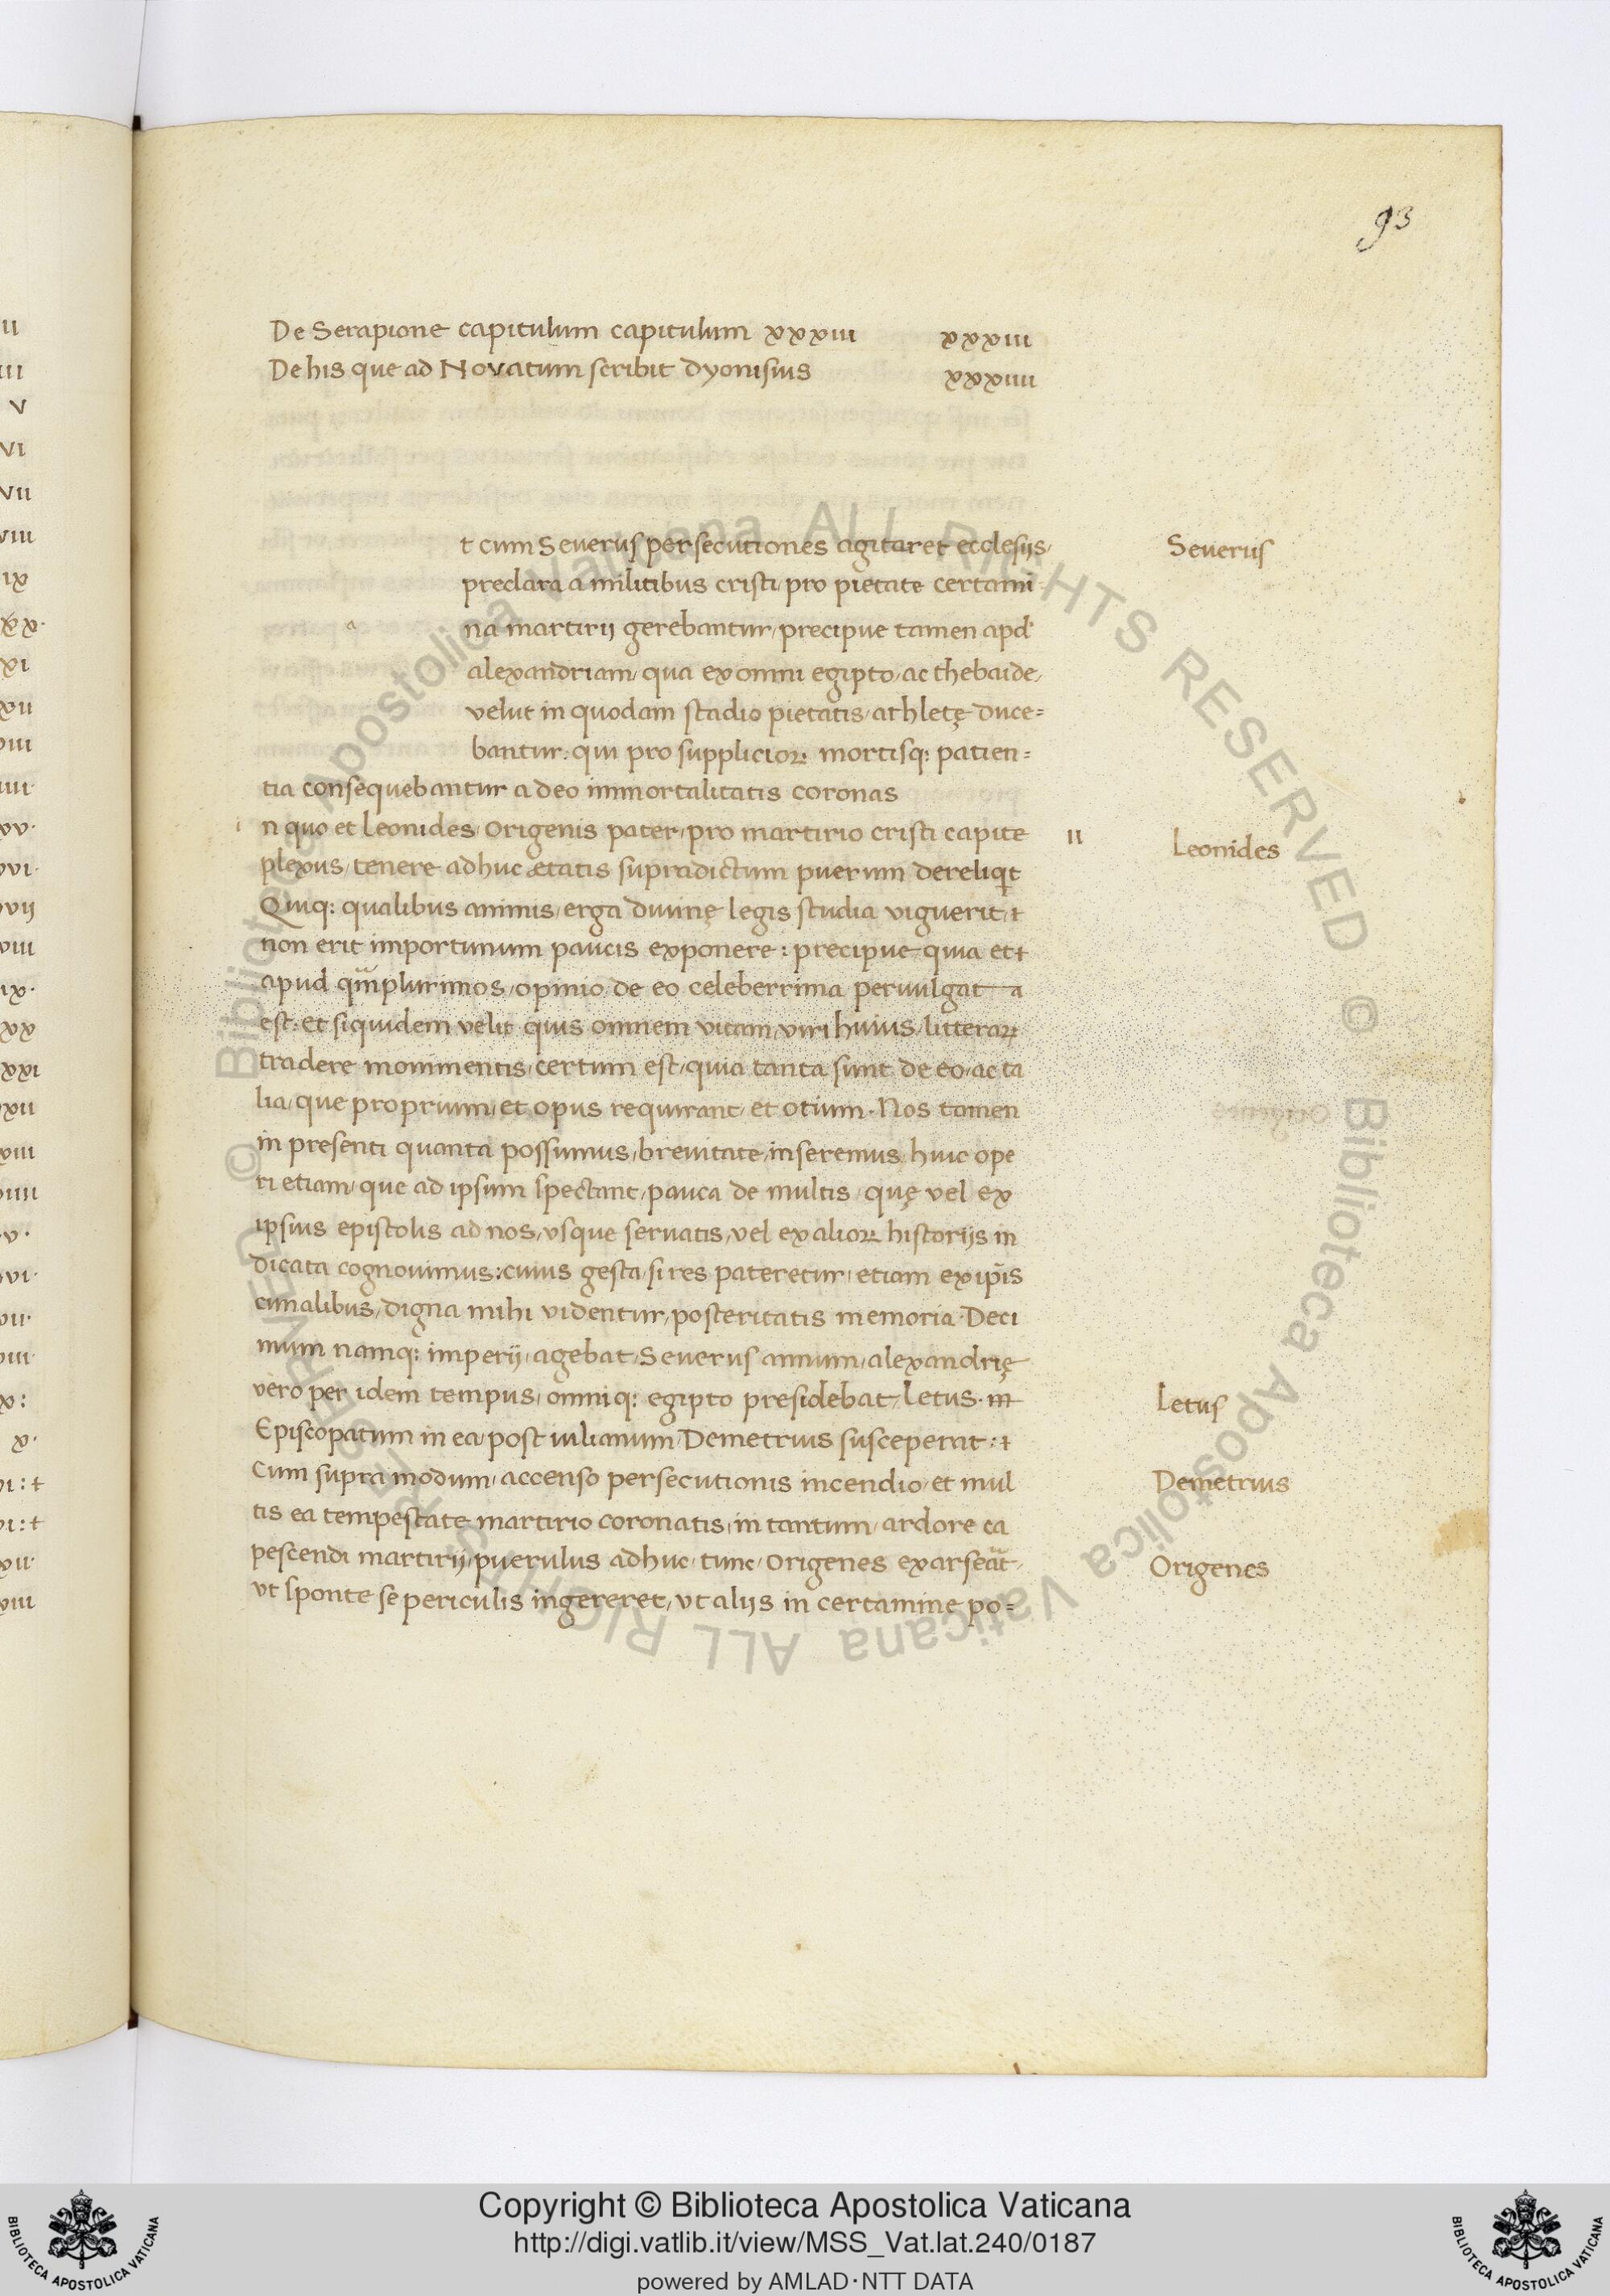 93
De Serapione capitulum capitulum xxxiii xxxiii
De his que ad Novatum scribit dyonisius xxxiiii
t cum Severus persecutiones agitaret ecclesijs, Severus
preclara a militibus cristi, pro pietate certami
a na martirij gerebantur, precipue tamen apd'
alexandriam, qua ex omni egipto, ac thebaide,
velut in quodam stadio pietatis, athletę duce=
bantur: qui pro supplicioꝝ mortisq: patien=
tia consequebantur a deo immortalitatis coronas
i n quo et leonides, origenis pater, pro martirio cristi capite II Leonides
plexus, tenere adhuc ætatis supradictum puerum dereliqͥt
Quiq: qualibus animis, erga divinę legis studia viguerit, t
non erit importunum paucis exponere: precipue quia et t
apud qͣmplurimos, opinio de eo celeberrima pervulgat a
est: et siquidem velit quis omnem vitam, viri huius, litteraꝝ
tradere monimentis, certum est, quia tanta sunt de eo, ac ta
lia, que proprium, et opus requirant, et otium. Nos tamen
in presenti quanta possumus, brevitate, inseremus huic ope
ri etiam, que ad ipsum spectant, pauca de multis, quę vel ex
ipsius epistolis ad nos, usque servatis, vel ex alioꝝ historijs in
dicata cognovimus: cuius gesta, si res pateretur, etiam ex ip̄is
cunalibus, digna mihi videntur, posteritatis memoria. Deci
mum namq: imperij, agebat, Severus annum, alexandrię
vero per idem tempus, omniq: egipto presidebat, letus. Letus
Episcopatum in ea, post iulianum, Demetrius susceperat: t
Cum supra modum, accenso persecutionis incendio, et mul Demetrius
tis ea tempestate martirio coronatis, in tantum, ardore ca
pescendi martirij, puerulus adhuc, tunc, origenes exarseāt, Origenes
ut sponte se periculis ingereret, ut alijs in certamine po=
Copyright © Biblioteca Apostolica Vaticana
http://digi.vatlib.it/view/MSS_Vat.lat.240/0187
powered by AMLAD·NTT DATA